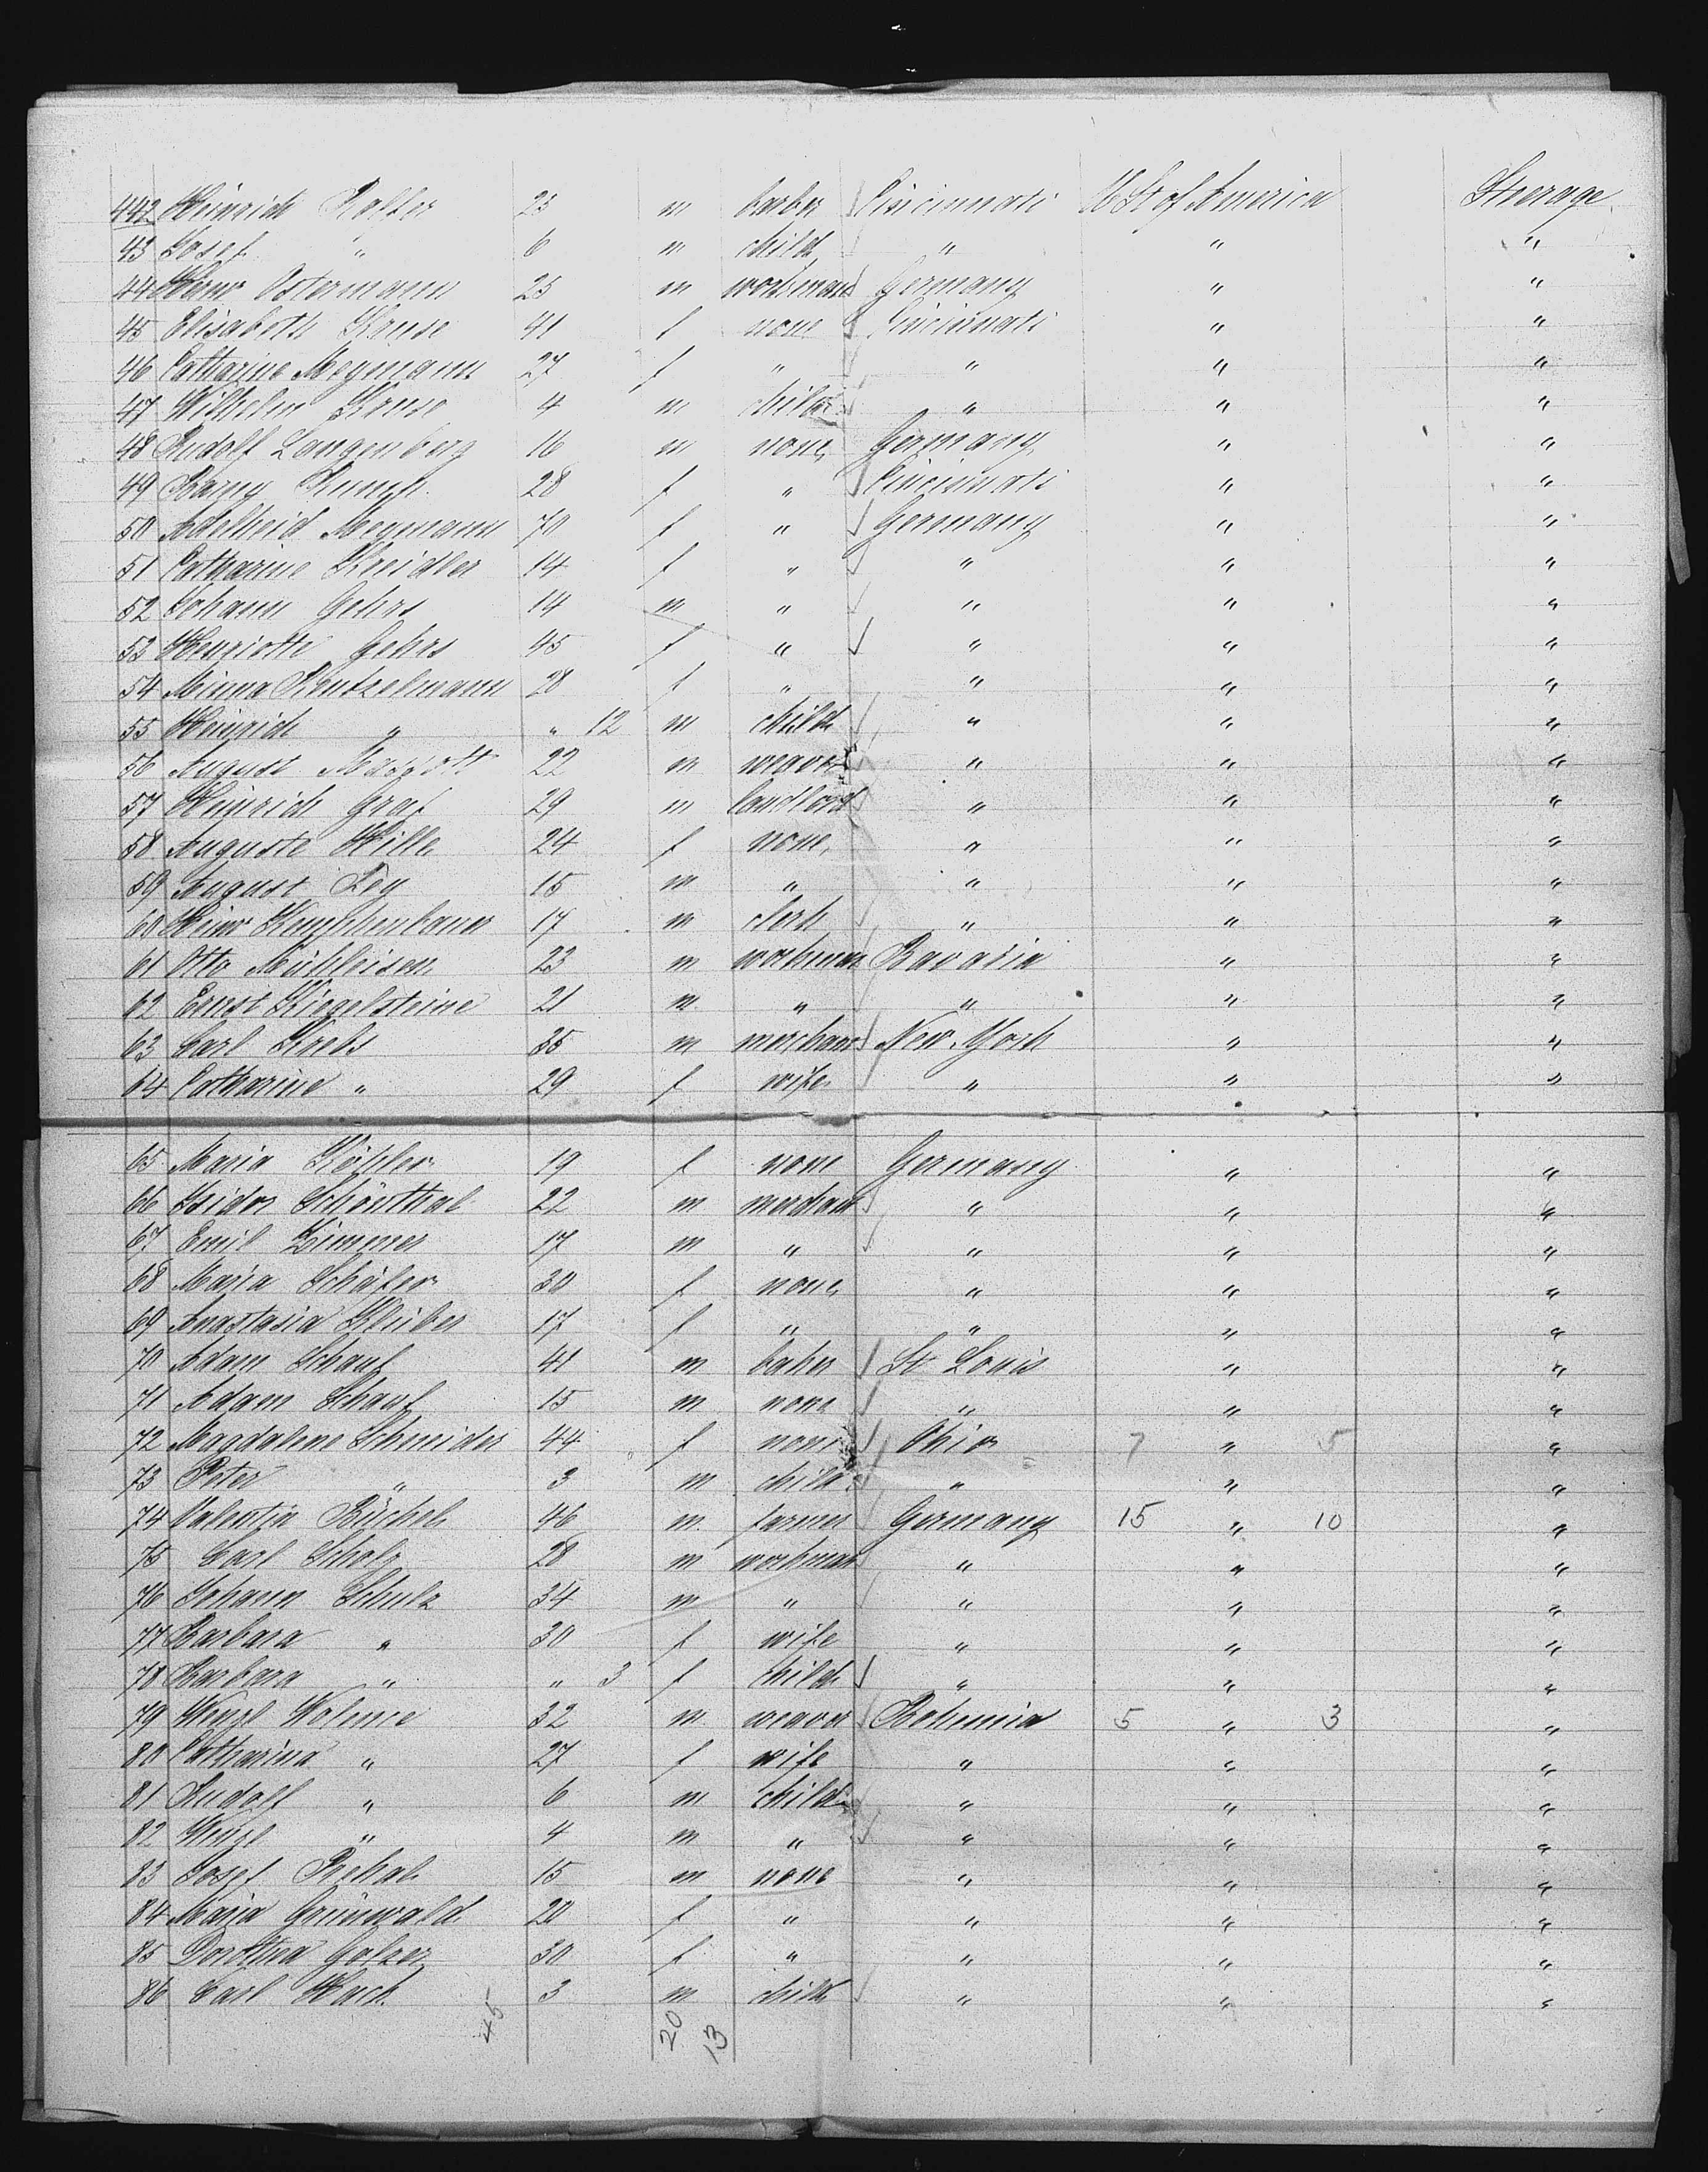 442 Heinrich Rolfes 25 m barber Cincinnati U St of America Steerage
43 Josef " 6 m child " " "
44 Heinr Ostermann 25 m workman Germany " "
45 Elisabeth Kruse 41 f none Cincinnati " "
46 Catharine Meymann 27 f " " " "
47 Wilhelm Kruse 4 m child " " "
48 Rudolf Langenberg 16 m none Germany " "
49 Fanny 28 f " Cincinnati " "
50 Adelheid Meymann 70 f " Germany " "
51 Catharine Kreidler 14 f " " " "
52 Johann Gehrs 14 m " " " "
53 Henriette Gehrs 45 f " " " "
54 Minna 28 f " " " "
55 Heinrich " " 12 m child " " "
56 August 22 m weaver " " "
57 Heinrich Graf 29 m landlord " " "
58 Auguste Hille 24 f none " " "
59 August Fey 15 m " " " "
60 Heinr 17 m clerk " " "
61 Otto Mühleisen 23 m workman Bavaria " "
62 Ernst Kiegelsteine 21 m " " " "
63 Carl Krebs 35 m merchant New-York " "
64 Catharine " 29 f wife " " "
65 Maria Köhler 19 f none Germany " "
66 Isidor Schönthal 22 m merchant " " "
67 Emil Zimmer 17 m " " " "
68 Maria Schäfer 30 f none " " "
69 Anastasia Kleiber 17 f " " " "
70 Adam Schauf 41 m baker St Louis " "
71 Adam Schauf 15 m none " " "
72 Magdalene Schneider 44 f none Ohio 7 " 5 "
73 Peter " 3 m child " " "
74 Valentin Büchel 46 m farmer Germany 15 " 10 "
75 Carl Scholz 28 m workman " " "
76 Johann Schulz 34 m " " " "
77 Barbara " 30 f wife " " "
78 Barbara " " 3 f child " " "
79 Wenzl Wolence 32 m weaver Bohemia 5 " 3 "
80 Catharina " 27 f wife " " "
81 Rudolf " 6 m child " " "
82 Wenzl " 4 m " " " "
83 Josef 15 m none " " "
84 Maria Grünwald 20 f " " " "
85 Dorothea Golzer 30 f " " " "
86 Carl Hach 3 m child " " "
45 20 13